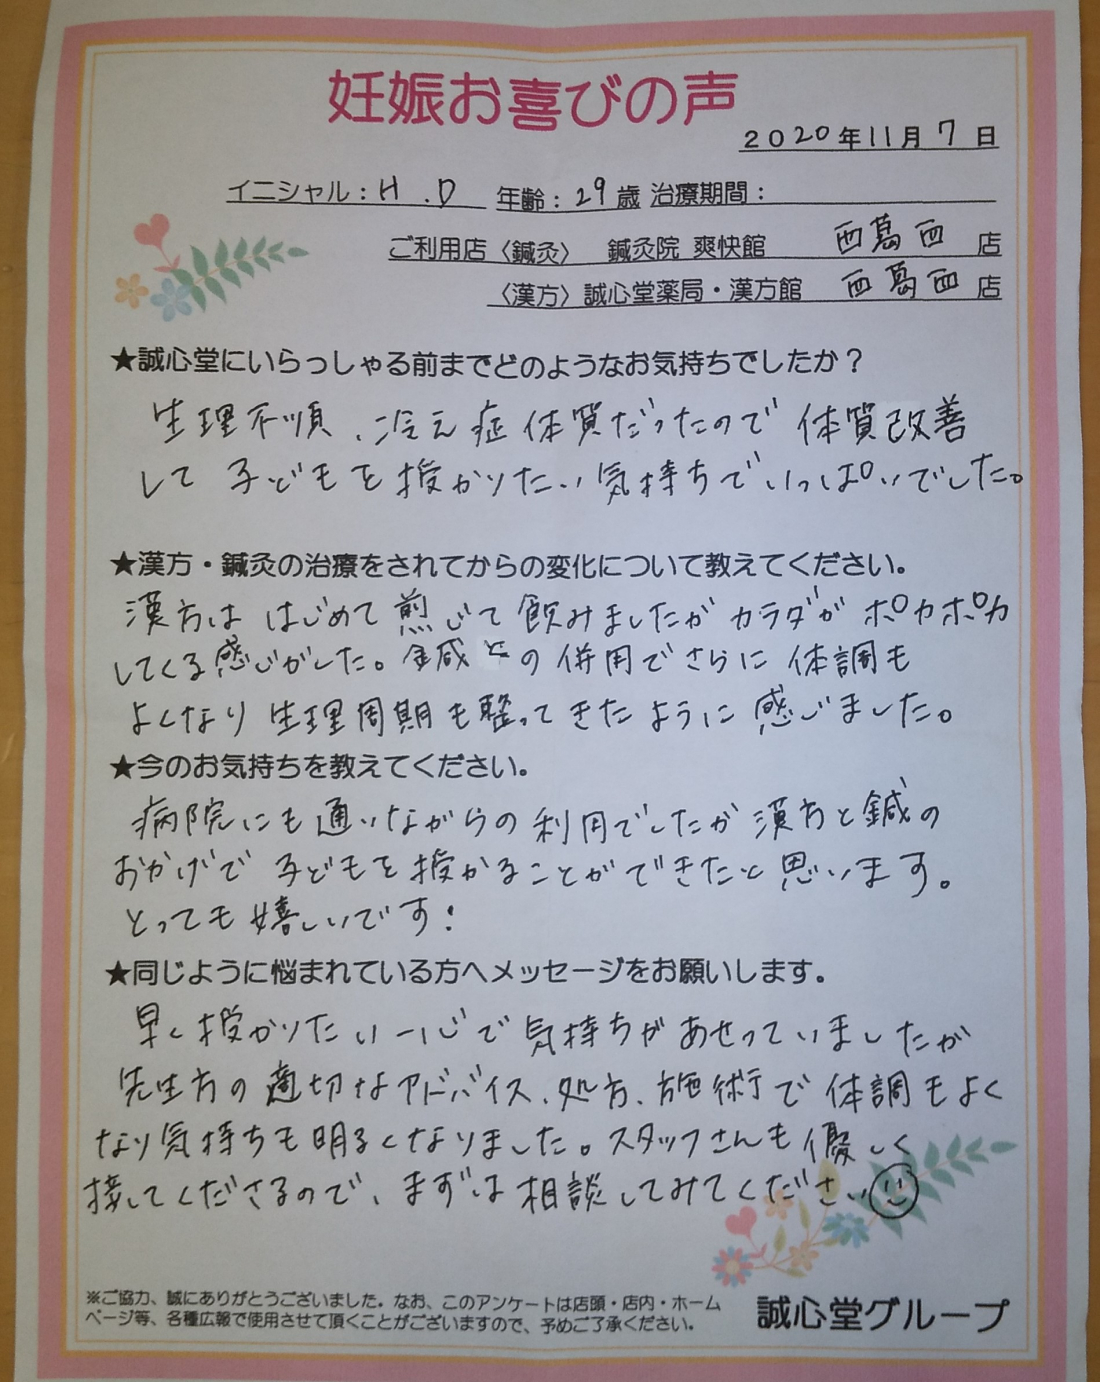 妊娠お喜びの声
2020年11月7日
イニシャル：H.D 年齢：29歳 治療期間：
ご利用店〈鍼灸〉 鍼灸院 爽快館 西葛西 店
〈漢方〉誠心堂薬局・漢方館 西葛西 店
★誠心堂にいらっしゃる前までどのようなお気持ちでしたか？
生理不順、冷え症体質だったので体質改善
して子どもを授かりたい気持ちでいっぱいでした。
★漢方・鍼灸の治療をされてからの変化について教えてください。
漢方は はじめて煎じて飲みましたがカラダがポカポカ
してくる感じがした。鍼との併用でさらに体調も
よくなり生理周期も整ってきたように感じました。
★今のお気持ちを教えてください。
病院にも通いながらの利用でしたが漢方と鍼の
おかげで子どもを授かることができたと思います。
とっても嬉しいです！
★同じように悩まれている方へメッセージをお願いします。
早く授かりたい一心で気持ちがあせっていましたが
先生方の適切なアドバイス、処方、施術で体調もよく
なり気持ちも明るくなりました。スタッフさんも優しく
接してくださるので、まずは相談してみてください
※ご協力、誠にありがとうございました。なお、このアンケートは店頭・店内・ホーム
ページ等、各種広報で使用させて頂くことがございますので、予めご了承ください。
誠心堂グループ